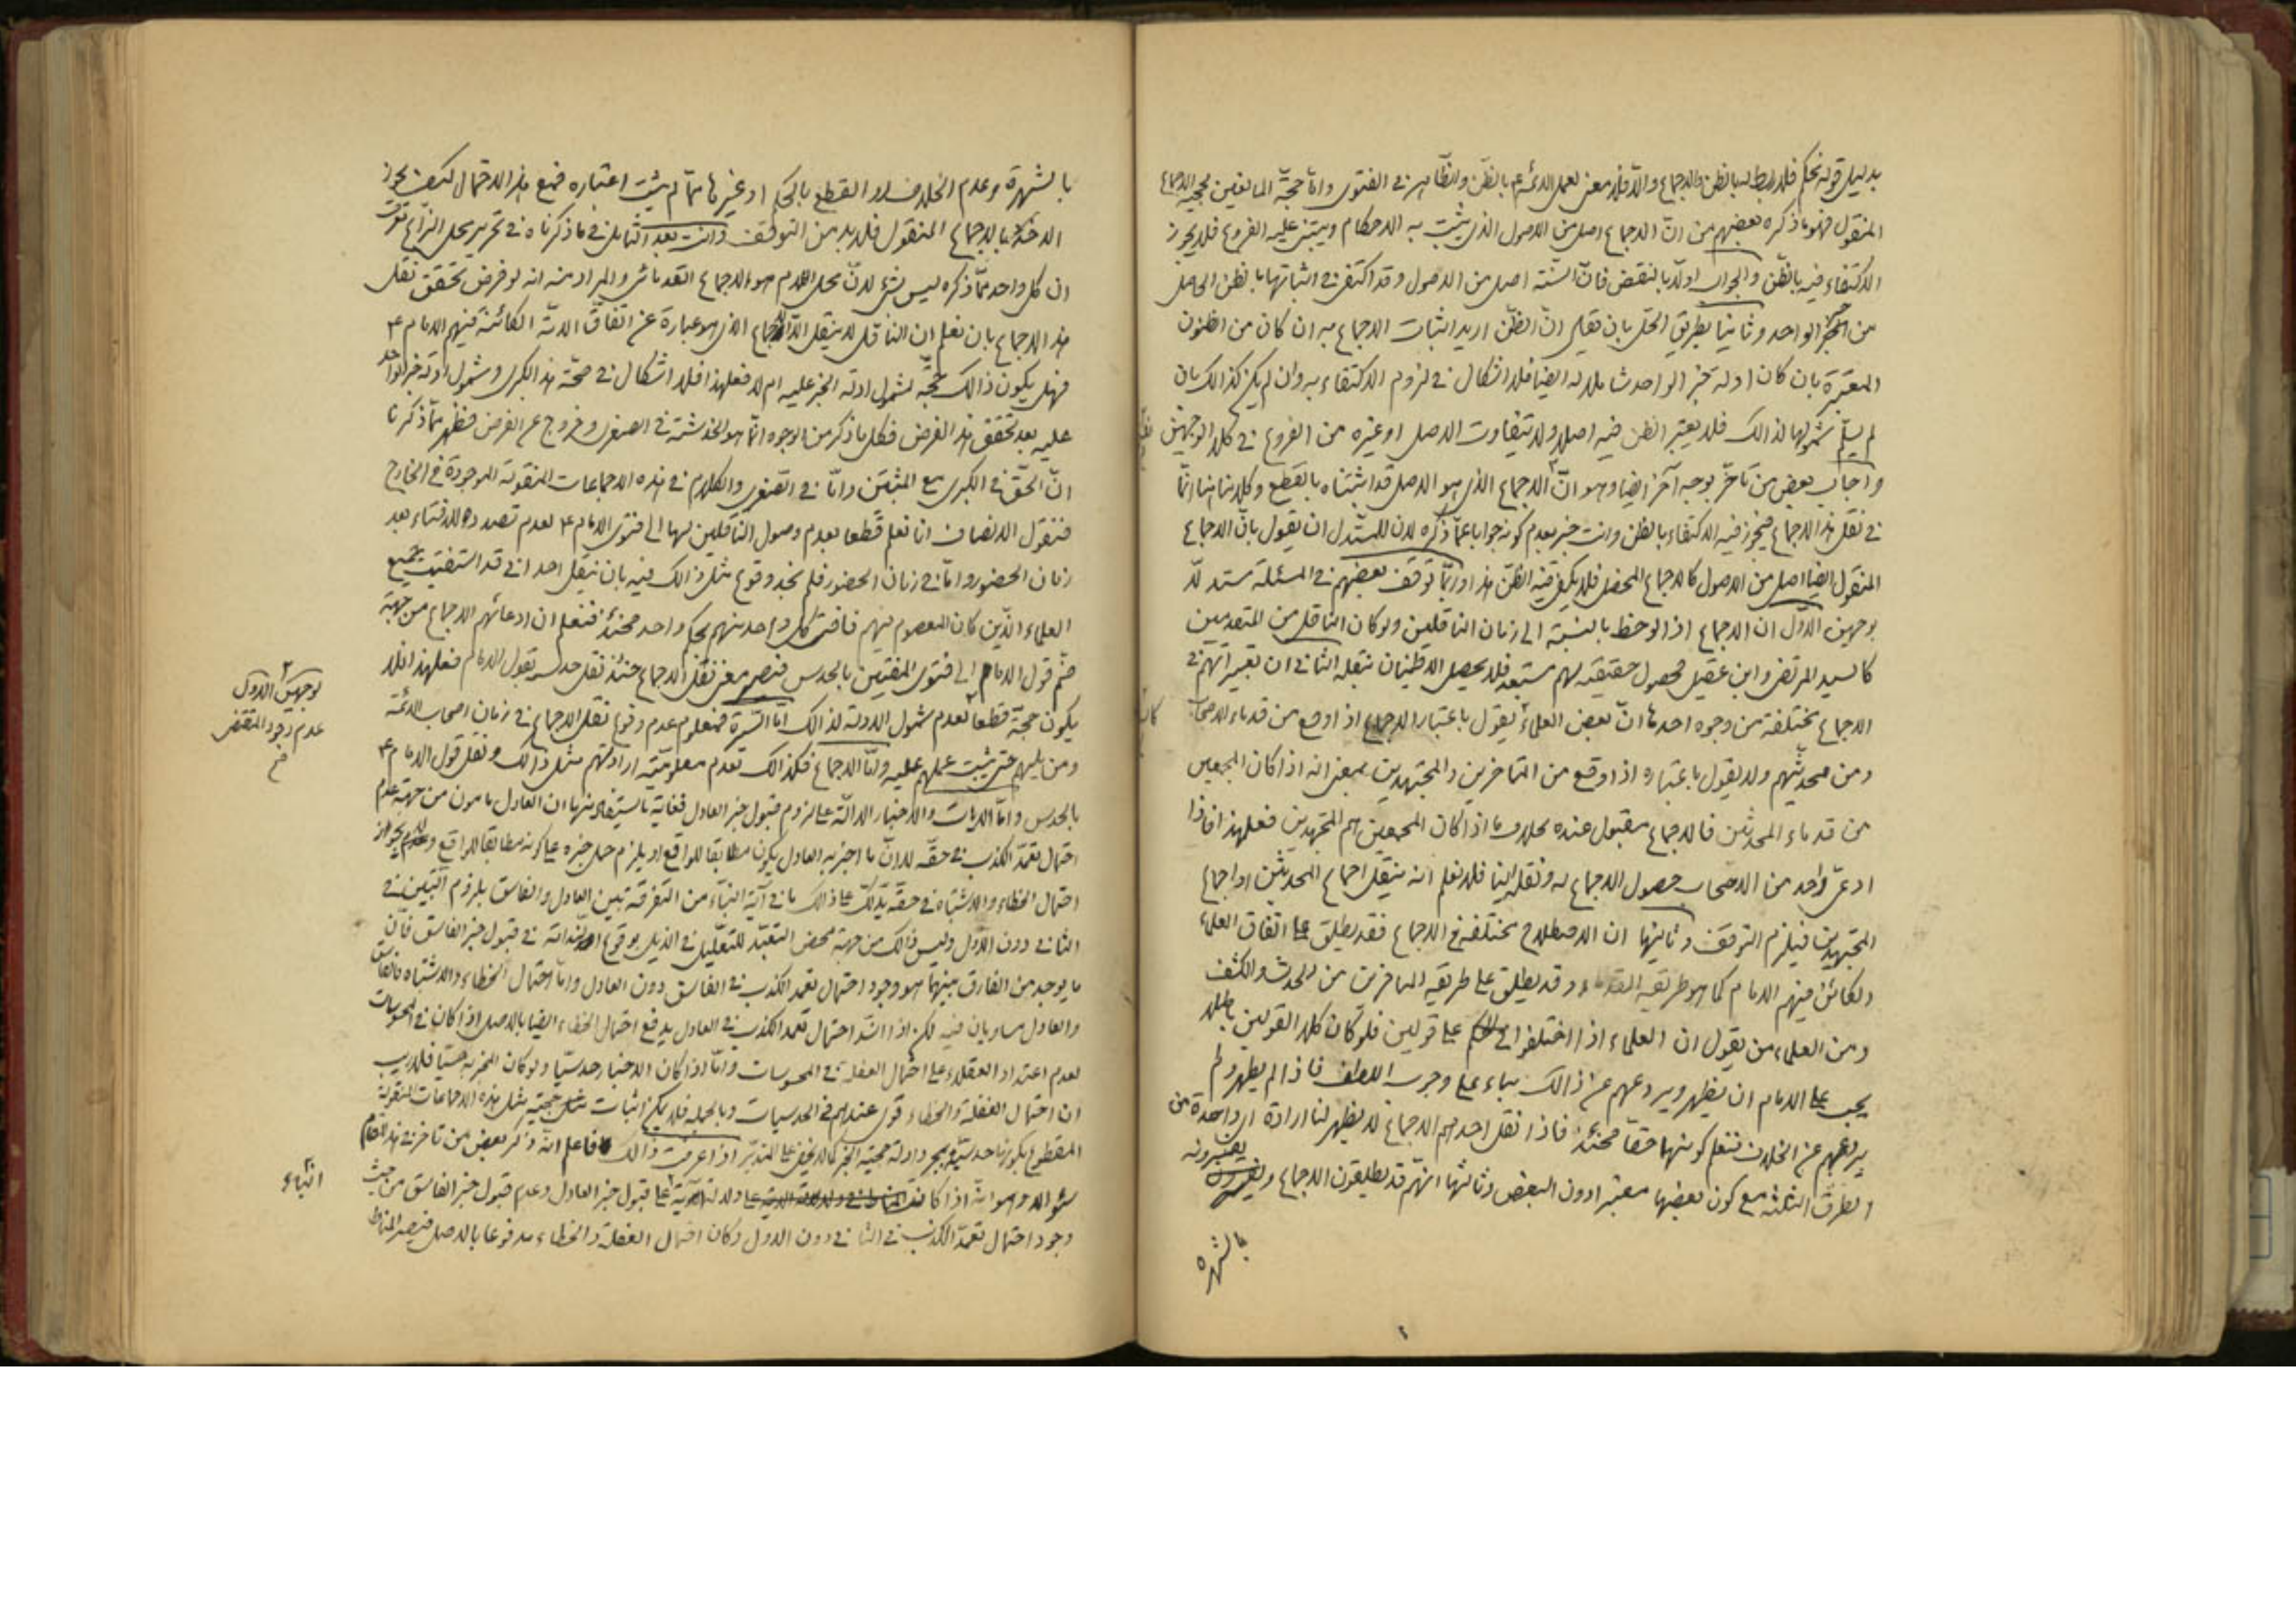 بدليل قوله نحكم فلا ربط له بالظن والاجماع والا فلا معنى لعمل الائمة ع بالظن والظاهر في الفتوى واما حجة المانعين لحجية الاجماع
المنقول فهو ما ذكره بعضهم من ان الاجماع اصل من الاصول الذي يثبت به الاحكام ويبتني عليه الفروع فلا يجوز
الاكتفاء فيه بالظن والجواب اولا بالنقض فان السنة اصل من الاصول وقد اكتفى في اثباتها بالظن الحاصل
من الخبر الواحد وثانيا بطريق الحل بان نقول ان الظن اريد اثبات الاجماع به ان كان من الظنون
المعتبرة بان كان ادلة خبر الواحد شاملا له ايضا فلا اشكال في لزوم الاكتفاء به وان لم يكن كذالك بان
لم يسلم شمولها لذالك فلا يعتبر الظن فيه اصلا ولا يتفاوت الاصل او غيره من الفروع في كلا الوجهين
واجاب بعض من تأخر بوجه آخر ايضا وهو ان الاجماع الذي هو الاصل قد اثبتناه بالقطع وكلامنا هنا انما
في نقل هذا الاجماع فيجوز فيه الاكتفاء بالظن وانت خبير بعدم كونه جوابا عما ذكره لان للمستدل ان يقول بان الاجماع
المنقول ايضا اصل من الاصول كالاجماع المحصل فلا يكفي فيه الظن هذا وربما توقف بعضهم في المسئلة مستدلا
بوجهين الاول ان الاجماع اذا لوحظ بالنسبة الى زمان الناقلين ولو كان الناقل من المتقدمين
كالسيد المرتضى وابن عقيل فحصول حقيقته لهم مستبعد فلا يحصل الاطمينان بنقله الثاني ان تعبيراتهم في
الاجماع مختلفة من وجوه احدها ان بعض العلماء يقول باعتبار الاجماع اذا وقع من قدماء الاصحاب
ومن محدثيهم ولا يقول باعتباره اذا وقع من المتاخرين والمجتهدين بمعنى انه اذا كان المجمعين
من قدماء المحدثين فالاجماع مقبول عنده بخلاف ما اذا كان المجمعين هم المجتهدين فعلى هذا فاذا
ادعى واحد من الاصحاب حصول الاجماع له ونقله الينا فلا نعلم انه ينقل اجماع المحدثين او اجماع
المجتهدين فيلزم التوقف وثانيها ان الاصطلاح مختلفة في الاجماع فقد يطلق على اتفاق العلماء
والكائن فيهم الامام كما هو طريقة القدماء وقد يطلق على طريقة المتاخرين من الحدس والكشف
ومن العلماء من يقول ان العلماء اذا اختلفوا في الحكم على قولين فلو كان كلا القولين باطلا
يجب على الامام ان يظهر ويردعهم عن ذالك بناء على وجوب اللطف فاذا لم يظهر ولم
يردعهم عن الخلاف فنعلم كونهما حقا فحينئذ فاذا نقل احدهم الاجماع لا يظهر لنا ارادة اي واحدة من
الطرق الثلثة مع كون بعضها معتبرا دون البعض وثالثها انهم قد يطلقون الاجماع ويعتبرونه
بالشهرة
بالشهرة وعدم الخلاف والقطع بالحكم او غيرها مما لم يثبت اعتباره فمع هذا الاحتمال كيف يجوز
الاخذ بالاجماع المنقول فلا بد من التوقف وانت بعد التأمل في ما ذكرناه في تحرير محل النزاع تعرف
ان كل واحد مما ذكره ليس بشئ لان محل الكلام هو الاجماع القدمائي والمراد منه انه لو فرض تحقق نقل
هذا الاجماع بان نعلم ان الناقل لا ينقل الا الاجماع الذي هو عبارة عن اتفاق الامة الكائنة فيهم الامام ع
فهل يكون ذالك حجة لشمول ادلة الخبر عليه ام لا فعلى هذا فلا اشكال في صحة هذا الكبرى وشمول ادلة خبر الواحد
عليه بعد تحقق هذا الفرض فكل ما ذكر من الوجوه انما هو الخدشة في الصغرى وخروج عن الفرض فظهر مما ذكرنا
ان الحق في الكبرى مع المثبتين واما في الصغرى والكلام في هذه الاجماعات المنقولة الموجودة في الخارج
فنقول الانصاف انا نعلم قطعا بعدم وصول الناقلين لها الى فتوى الامام ع لعدم تصدره للافتاء بعد
زمان الحضور واما في زمان الحضور فلم نجد وقوع مثل ذالك فيه بان ينقل احد اني قد استفتيت جميع
العلماء الذين كان المعصوم فيهم فافتى كل واحد منهم بحكم واحد فحينئذ فنعلم ان ادعائهم الاجماع من جهة
ضم قول الامام الى فتوى المفتين بالحدس فيصير معنى نقل الاجماع حينئذ نقل حدسه بقول الامام فعلى هذا فلا
يكون حجة قطعا لعدم شمول الادلة لذالك اما السيرة فمعلوم عدم وقوع نقل الاجماع في زمان اصحاب الائمة
ومن يليهم حتى يثبت عملهم عليه واما الاجماع فكذالك لعدم معلومية ارادتهم مثل ذالك ونقل قول الامام ع
بالحدس واما الايات والاخبار الدالة على لزوم قبول خبر العادل فغاية ما يستفاد منها ان العادل مامون من جهة عدم
احتمال تعمد الكذب في حقه لا ان ما اخبر به العادل يكون مطابقا للواقع او يلزم حمل خبره على كونه مطابقا للواقع وعدم جواز
احتمال الخطاء والاشتباه في حقه يدلك على ذالك ما في آية النباء من التفرقة بين العادل والفاسق بلزوم التبين في
الثاني دون الاول وليس ذالك من جهة محض التعبد للتعليل في الذيل بوقوع الندامة في قبول خبر الفاسق فان
ما يوجد من الفارق بينهما هو وجود احتمال تعمد الكذب في الفاسق دون العادل واما احتمال الخطاء والاشتباه فالفاسق
والعادل مساويان فيه لكن اذا انسد احتمال تعمد الكذب في العادل يدفع احتمال الخطاء ايضا بالاصل اذا كان في المحسوسات
لعدم اعتداد العقلاء على احتمال الغفلة في المحسوسات واما اذا كان الاخبار حدسيا ولو كان المخبر به حسيا فلا ريب
ان احتمال الغفلة والخطاء قوى عندهم في الحدسيات وبالجملة فلا يمكن اثبات حجية مثل هذه الاجماعات المنقولة
المقطوع بكونها حدسية بمجرد ادلة حجية الخبر كما لا يخفى على المتدبر اذا عرفت ذالك فاعلم انه ذكر بعض من تاخر في هذا المقام
سؤالا وهو انه اذا كان المناط في دلالة آية على قبول خبر العادل وعدم قبول خبر الفاسق من حيث
وجود احتمال تعمد الكذب في الثاني دون الاول وكان احتمال الغفلة والخطاء مدفوعا بالاصل فيصير المناط
لوجهين الاول
عدم وجود المقتضى
النباء